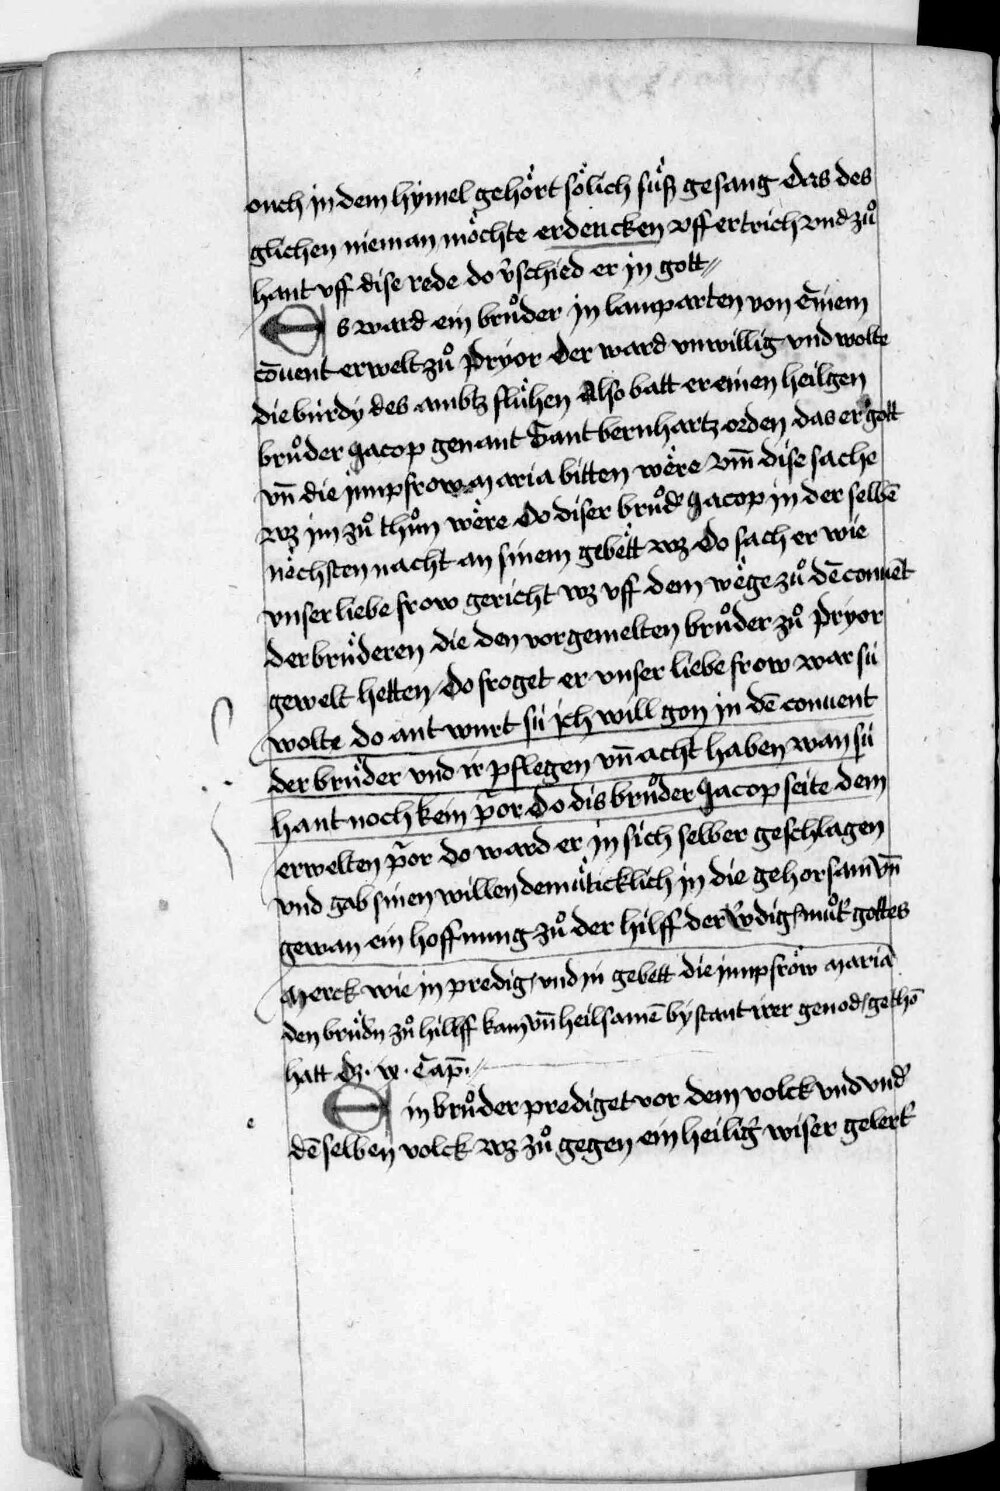 ouch in dem hymel gehoͤrt soͤlich suͤß gesang Das des
glichen nieman moͤchte erdencken vff ertrich vnd zuͦ
hant vff dise rede do v̄schied er in gott
Es ward ein bruͦder in lamparten von einem
cōuent erwelt zuͦ pryor Der ward vnwillig vnd wolte
die bürdy des ambtz fluͤhen Also batt er einen heilgen
bruͦder Jacop genant Sant bernhartz orden das er gott
vn̄ die jumpfrow maria bitten weͤre vm̄ dise sache
wz im zuͦ thuͦn weͤre Do diser bruͦd' Jacop in der selbē
neͤchsten nacht an sinem gebeͤtt wz Do sach er wie
vnser liebe frow gericht wz vff dem weͤge zuͦ dē conuēt
der bruͤderen die den vorgemelten bruͦder zuͦ pryor
gewelt hetten / Do froget er vnser liebe frow war sü
wolte do ant wurt sü ich will gon in dē conuent
der bruͤder vnd ir pflegen vn̄ acht haben wan sü
hant noch kein p̄or Do dis bruͦder Jacop seite dem
erwelten p̄or do ward er in sich selber geschlagen
vnd gab sinen willen demuͤticklich in die gehorsam vn̄
gewan ein hoffnung zuͦ der hilff der w̄digē muͦt' gottes
Merck wie in predig / vnd in gebett die jumpfroͤw maria
den bruͤdn zuͦ hillff kam vn̄ heilsamē bystant irer genod / gethō
hatt Dz . w . Cap̄ .
Ein bruͦder prediget vor dem volck vnd vnd'
dē selben volck wz zuͦ gegen ein heilig' wiser gelert'